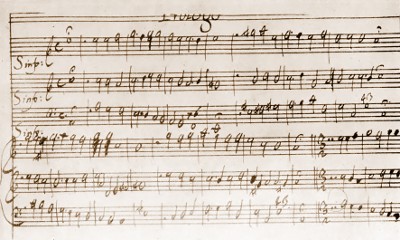 Prologo
Sinf:
Sinf:
Sinf: